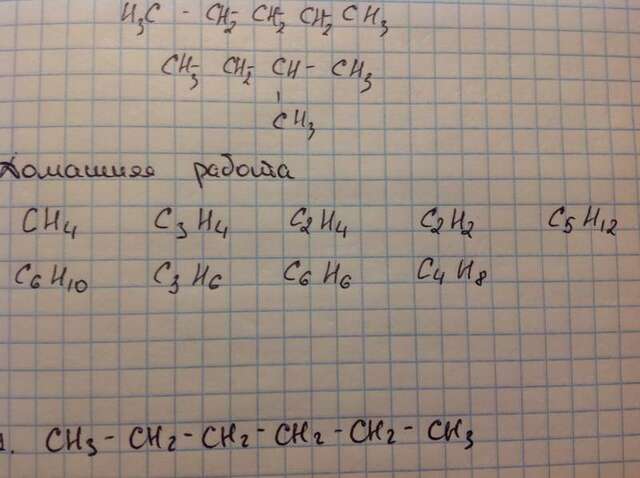 H₃C - CH₂- CH₂- CH₂- CH₃
CH₃- CH₂- CH - CH₃
CH₃
Домашняя работа
CH₄ C₃H₄ C₂H₄ C₂H₂ C₅H₁₂
C₆H₁₀ C₃H₆ C₆H₆ C₄H₈
1. CH₃- CH₂- CH₂- CH₂- CH₂- CH₃